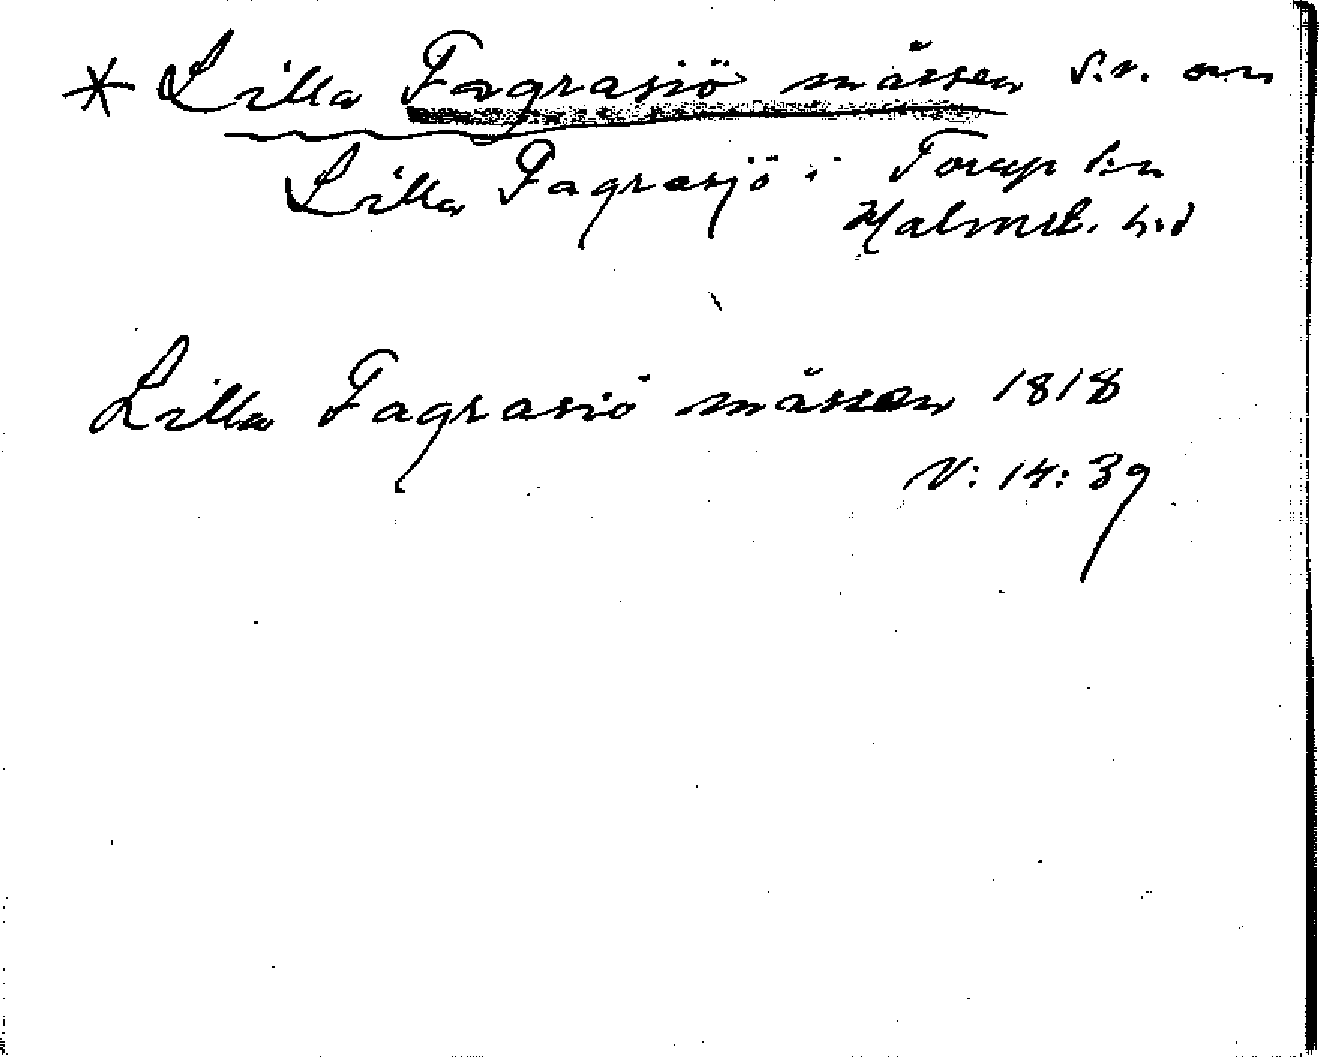 * Lilla Fagrasiö mässen S.v. om
Lilla Fagrasjö i Torup sn
Halmst. h:d
Lilla Fagrasiö mässen 1818
V: 14: 39